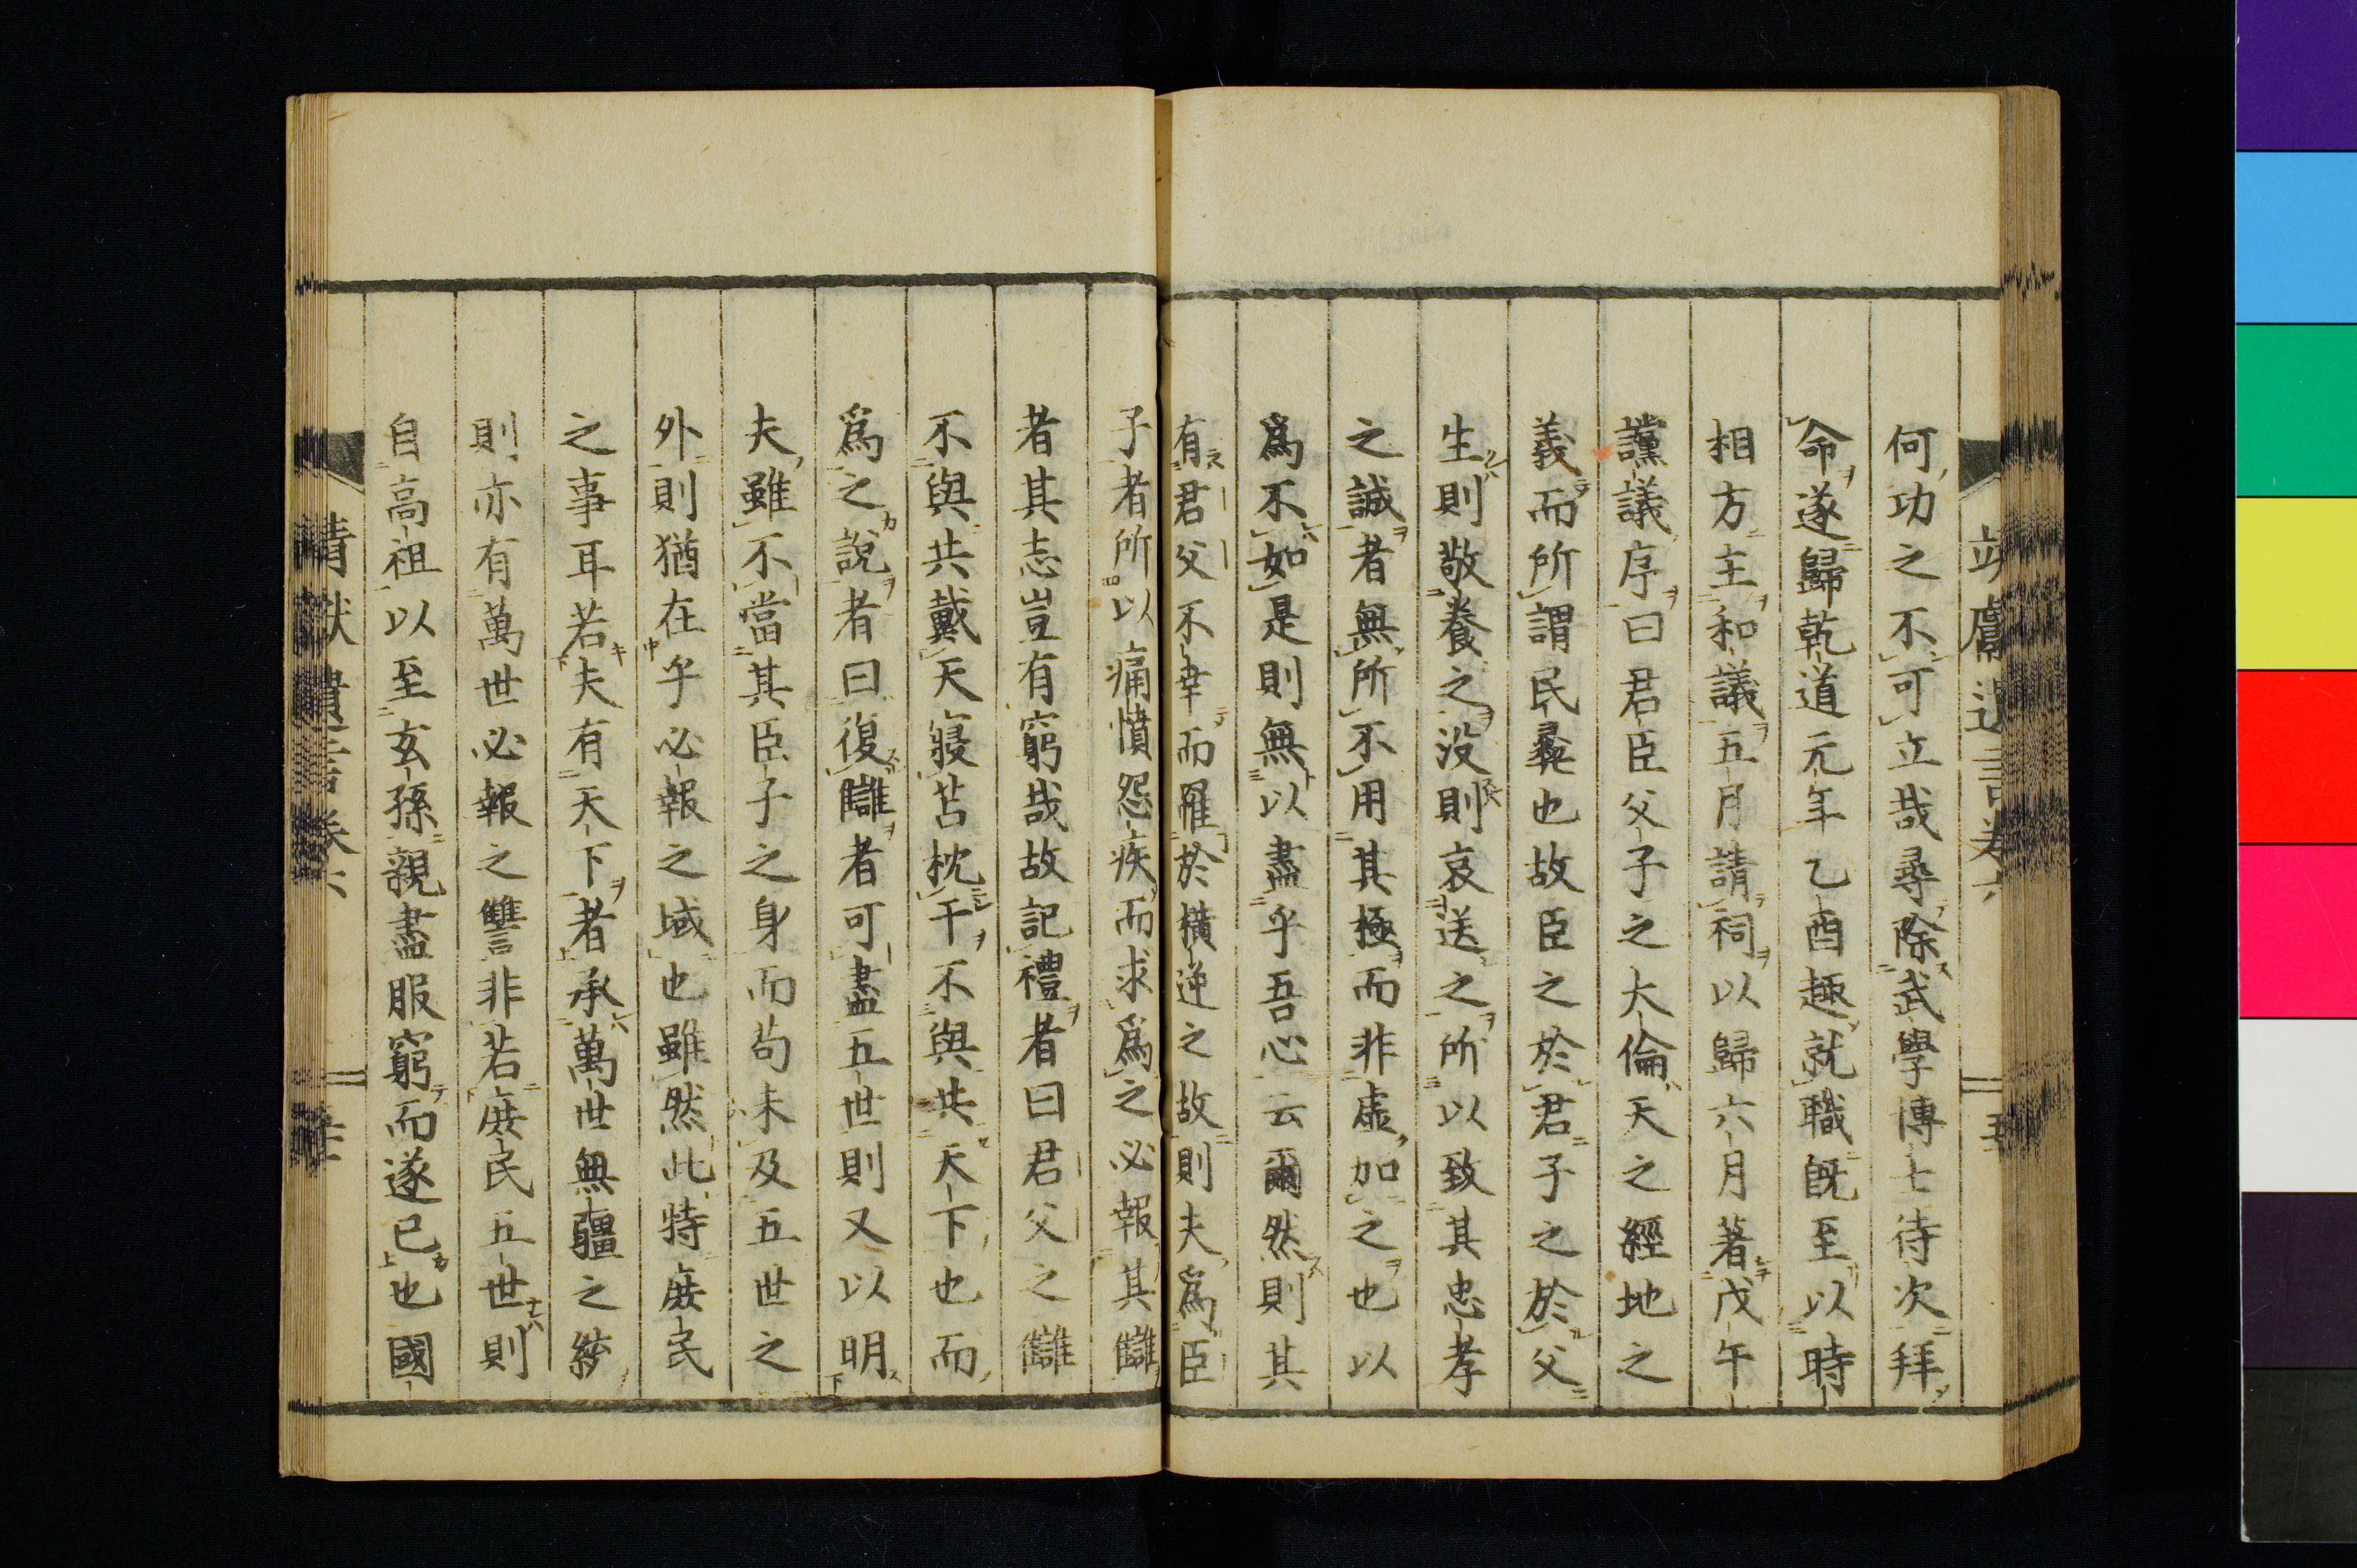 何功之不可立哉尋除武學博士待次拜
命遂歸乾道元年乙酉趣就職既至以時
相方主和議五月請祠以歸六月著戊午
讜議序曰君臣父子之大倫天之經地之
義而所謂民彝也故臣之於君子之於父
生則敬養之没則哀送之所以致其忠孝
之誠者無所不用其極而非虛加之也以
爲不如是則無以盡乎吾心云爾然則其
有君父不幸而罹於橫逆之故則夫爲臣
子者所以痛憤怨疾而求爲之必報其讎
者其志豈有窮哉故記禮者曰君父之讎
不與共戴天寢苫枕干不與共天下也而
爲之說者曰復讎者可盡五世則又以明
夫雖不當其臣子之身而苟未及五世之
外則猶在乎必報之域也雖然此特庶民
之事耳若夫有天下者承萬世無疆之統
則亦有萬世必報之讐非若庶民五世則
自高祖以至玄孫親盡服窮而遂已也國